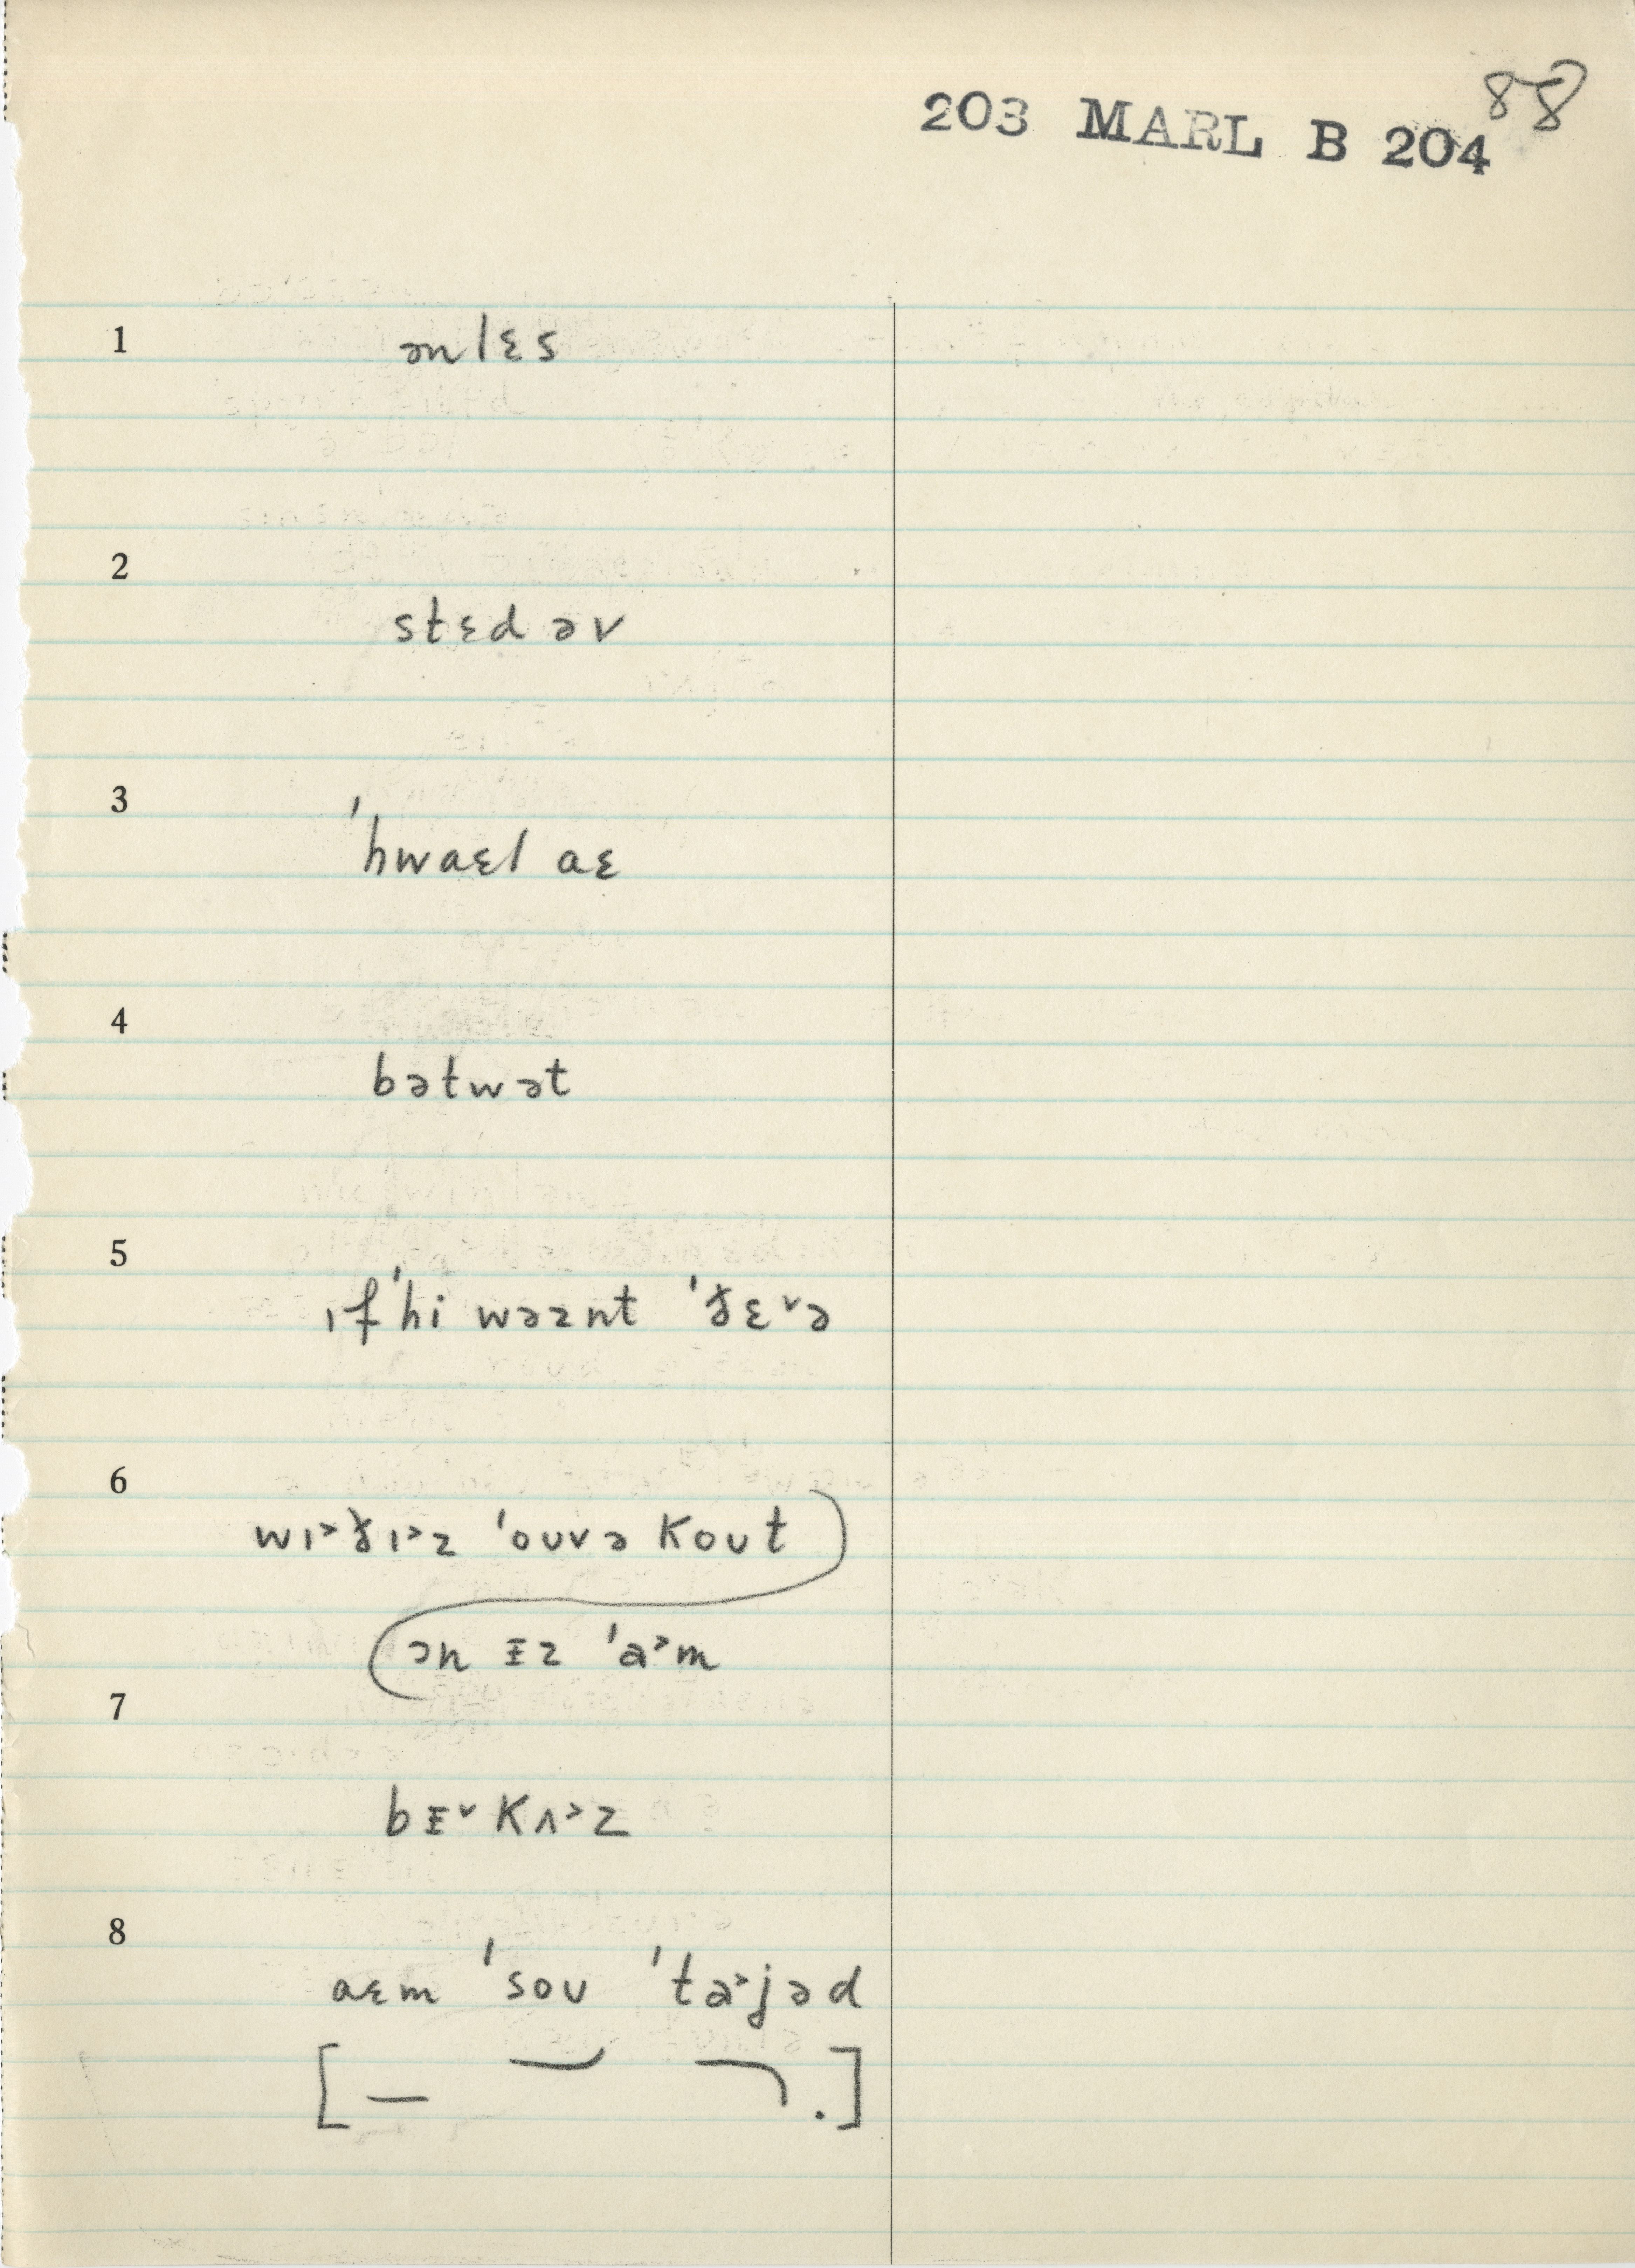 88
203 MARL B 204
1 ənlɛs
2 stɛd əv
3 ˈhwaɛl aɛ
4 bətwət
5 ɪf ˈhi wəznt ˈðɛ˅ə
6 wɪ˃ðɪ˃z ˈouvə kout
ən ɪz ˈa˃m
7 bɪ˅ kʌ˃z
8 aɛm ˈsou ˈta˃jəd
[— .]